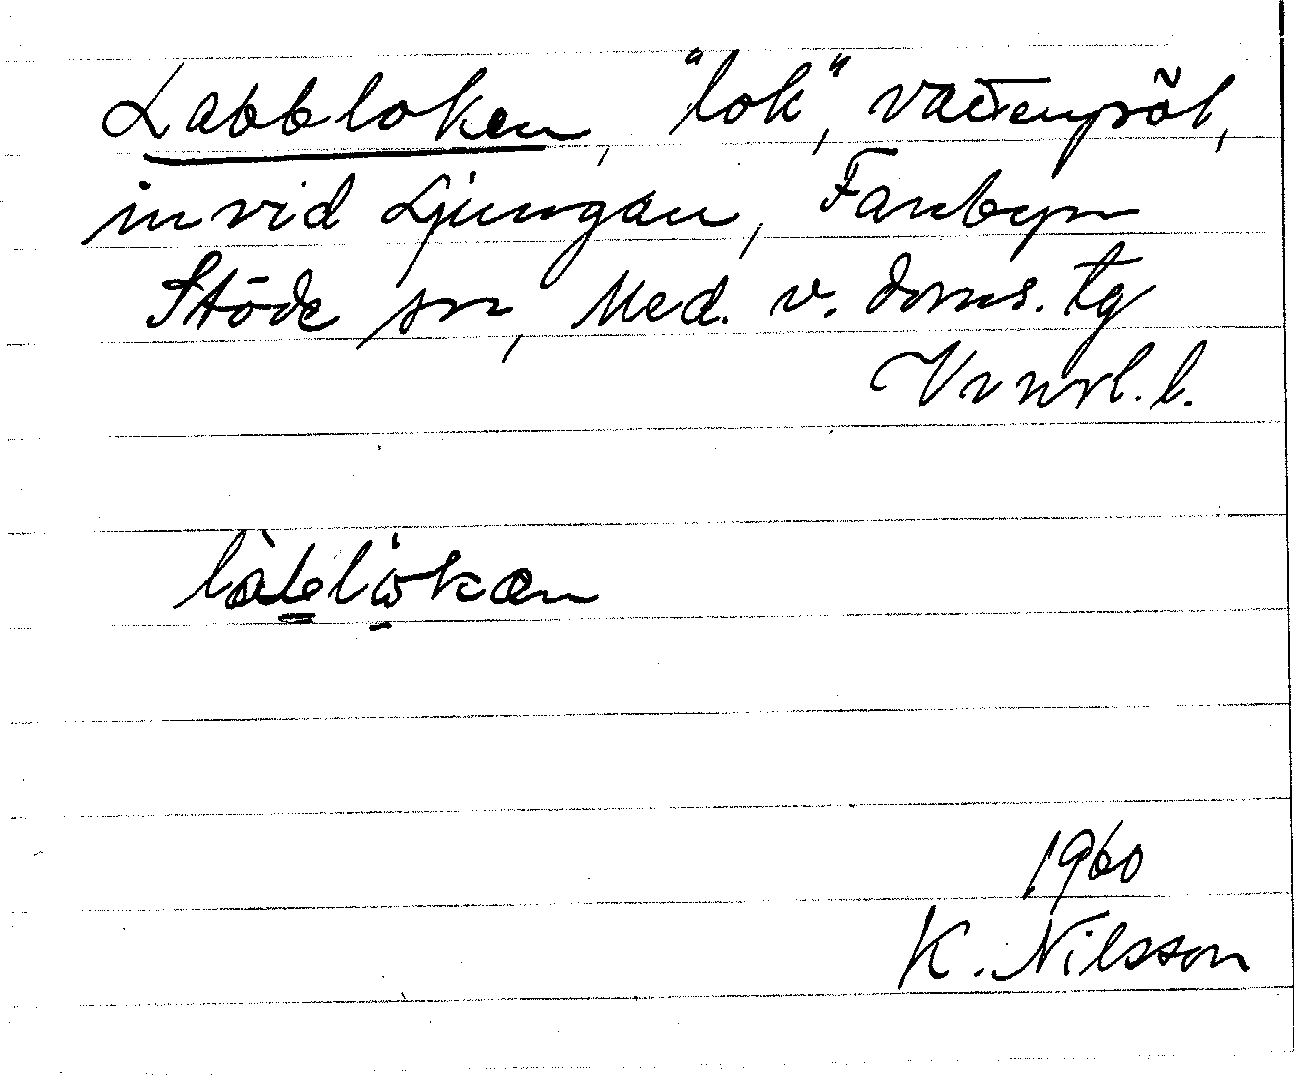 Labbloken, "lok", vattenpöl,
invid Ljungan, Fanbyn
Stöde sn, Med. v. doms. tg
Vrnrl. l.
làbblòkæn
1960
K. Nilsson